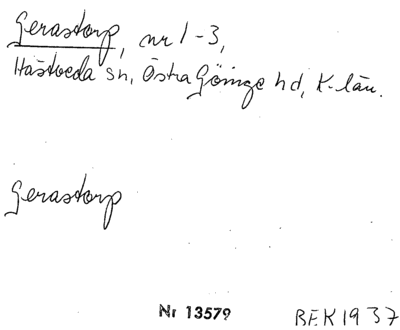 Gerastorp, nr 1-3,
Hästveda sn, Östra Göinge hd, K-län.
Gerastorp
Nr 13579
BEK 1937